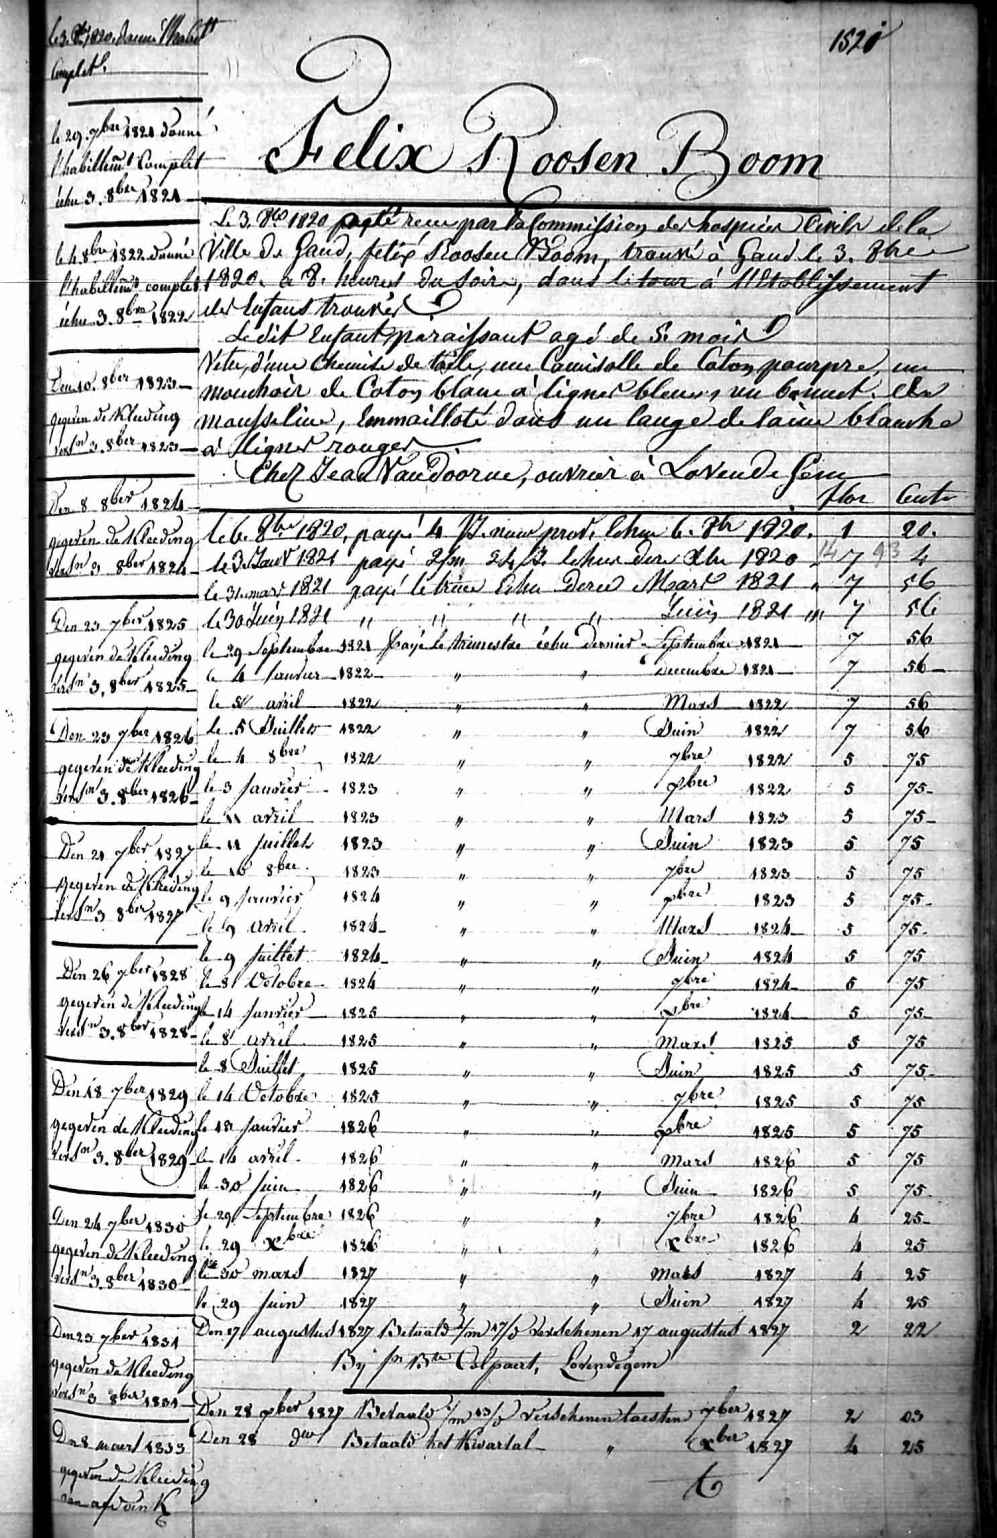 le 3. 8bre 1820. donné l'habillt
Complet.
1520
le 29. 7bre 1821 donné
l'habillemt Complet
échu 3. 8bre 1821
le 4. 8bre 1822. donné
l'habillemt complet
échu 3. 8bre 1822
Den 10. 8ber 1823
gegeven de Kleeding
versn 3. 8ber 1823
Den 8 8ber 1824
gegeven de Kleeding
versn 3 8ber 1824
Den 23 7ber 1825
gegeven de Kleeding
versn 3. 8ber 1825
Den 23 7ber 1826
gegeven de Kleeding
versn 3. 8ber 1826
Den 21 7ber 1827
gegeven de Kleeding
versn 3 8ber 1827
Den 26 7ber 1828
gegeven de Kleeding
versn 3. 8ber 1828
Den 18 7ber 1829
gegeven de Kleeding
versn 3. 8ber 1829
Den 24 7ber 1830
gegeven de Kleeding
versn 3. 8ber 1830
Den 23 7ber 1831
gegeven de Kleeding
versn 3 8ber 1831
Den 8 maert 1833
gegeven de Kleeding
van
Felix Roosen Boom
Le 3. 8bre 1820 reçu par la Commission des hospices Civils de la
Ville de Gand, felix Roosen Boom, trouvé à Gand le 3. 8bre
1820. à 8. heures du soire, dans le tour à l'Etablissement
des Enfans trouvés
Le dit Enfant paraissant agé de 5 mois
Vetu, d'une Chemise de toile, une Camisolle de Coton pourpre, un
mouchoir de Coton blanc à lignes bleues, un bonnet de
mousseline, Emmailloté dans un lange de laine blanche
à lignes rouges
Chez Jean Van Doorne, ouvrier à Lovendegem
flor Cents
le 6. 8bre 1820, payé 4 prov. Echu 6. 8br 1820. 1 20.
le 3 Janvr 1821 payé Echu der Xbre 1820 7 4
14 93
le 31 mars 1821 payé le trim Echu dernr Mars 1821 " 7 56
le 30 Juin 1821 " " " " Juin 1821 " 7 56
le 29 Septembre 1821 payé le trimestre échu dernier Septembre 1821 7 56
le 4 Janvier 1822 " " Decembre 1821 7 56
le 5 avril 1822 " " Mars 1822 7 56
le 5 Juillet 1822 " " Juin 1822 7 56
le 4 8bre 1822 " " 7bre 1822 5 75
le 3 Janvier 1823 " " xbre 1822 5 75
le 11 avril 1823 " " Mars 1823 5 75
le 11 Juillet 1823 " " Juin 1823 5 75
le 10 8bre 1823 " " 7bre 1823 5 75
le 9 Janvier 1824 " " xbre 1823 5 75
le 9 avril 1824 " " Mars 1824 5 75
le 9 Juillet 1824 " " Juin 1824 5 75
le 8 Octobre 1824 " " 7bre 1824 5 75
le 14 Janvier 1825 " " xbre 1824 5 75
le 8 avril 1825 " " Mars 1825 5 75
le 8 Juillet 1825 " " Juin 1825 5 75
le 14 Octobre 1825 " " 7bre 1825 5 75
le 13 Janvier 1826 " " xbre 1825 5 75
le 14 avril 1826 " " Mars 1826 5 75
le 30 Juin 1826 " " Juin 1826 5 75
le 29 Septembre 1826 " " 7bre 1826 4 25
le 29 Xbre 1826 " " Xbre 1826 4 25
le 30 mars 1827 " " Mars 1827 4 25
le 29 Juin 1827 " " Juin 1827 4 25
Den 17 augustus 1827 Betaald 1/m 17/d Verschenen 17 augustus 1827 2 22
Bij Colpaert, Lovendegem
Den 28 7ber 1827 Betaald 1/m 13/d Verschenen laesten 7ber 1827 2 03
Den 28 Xber Betaald het Kwartal " Xber 1827 4 25